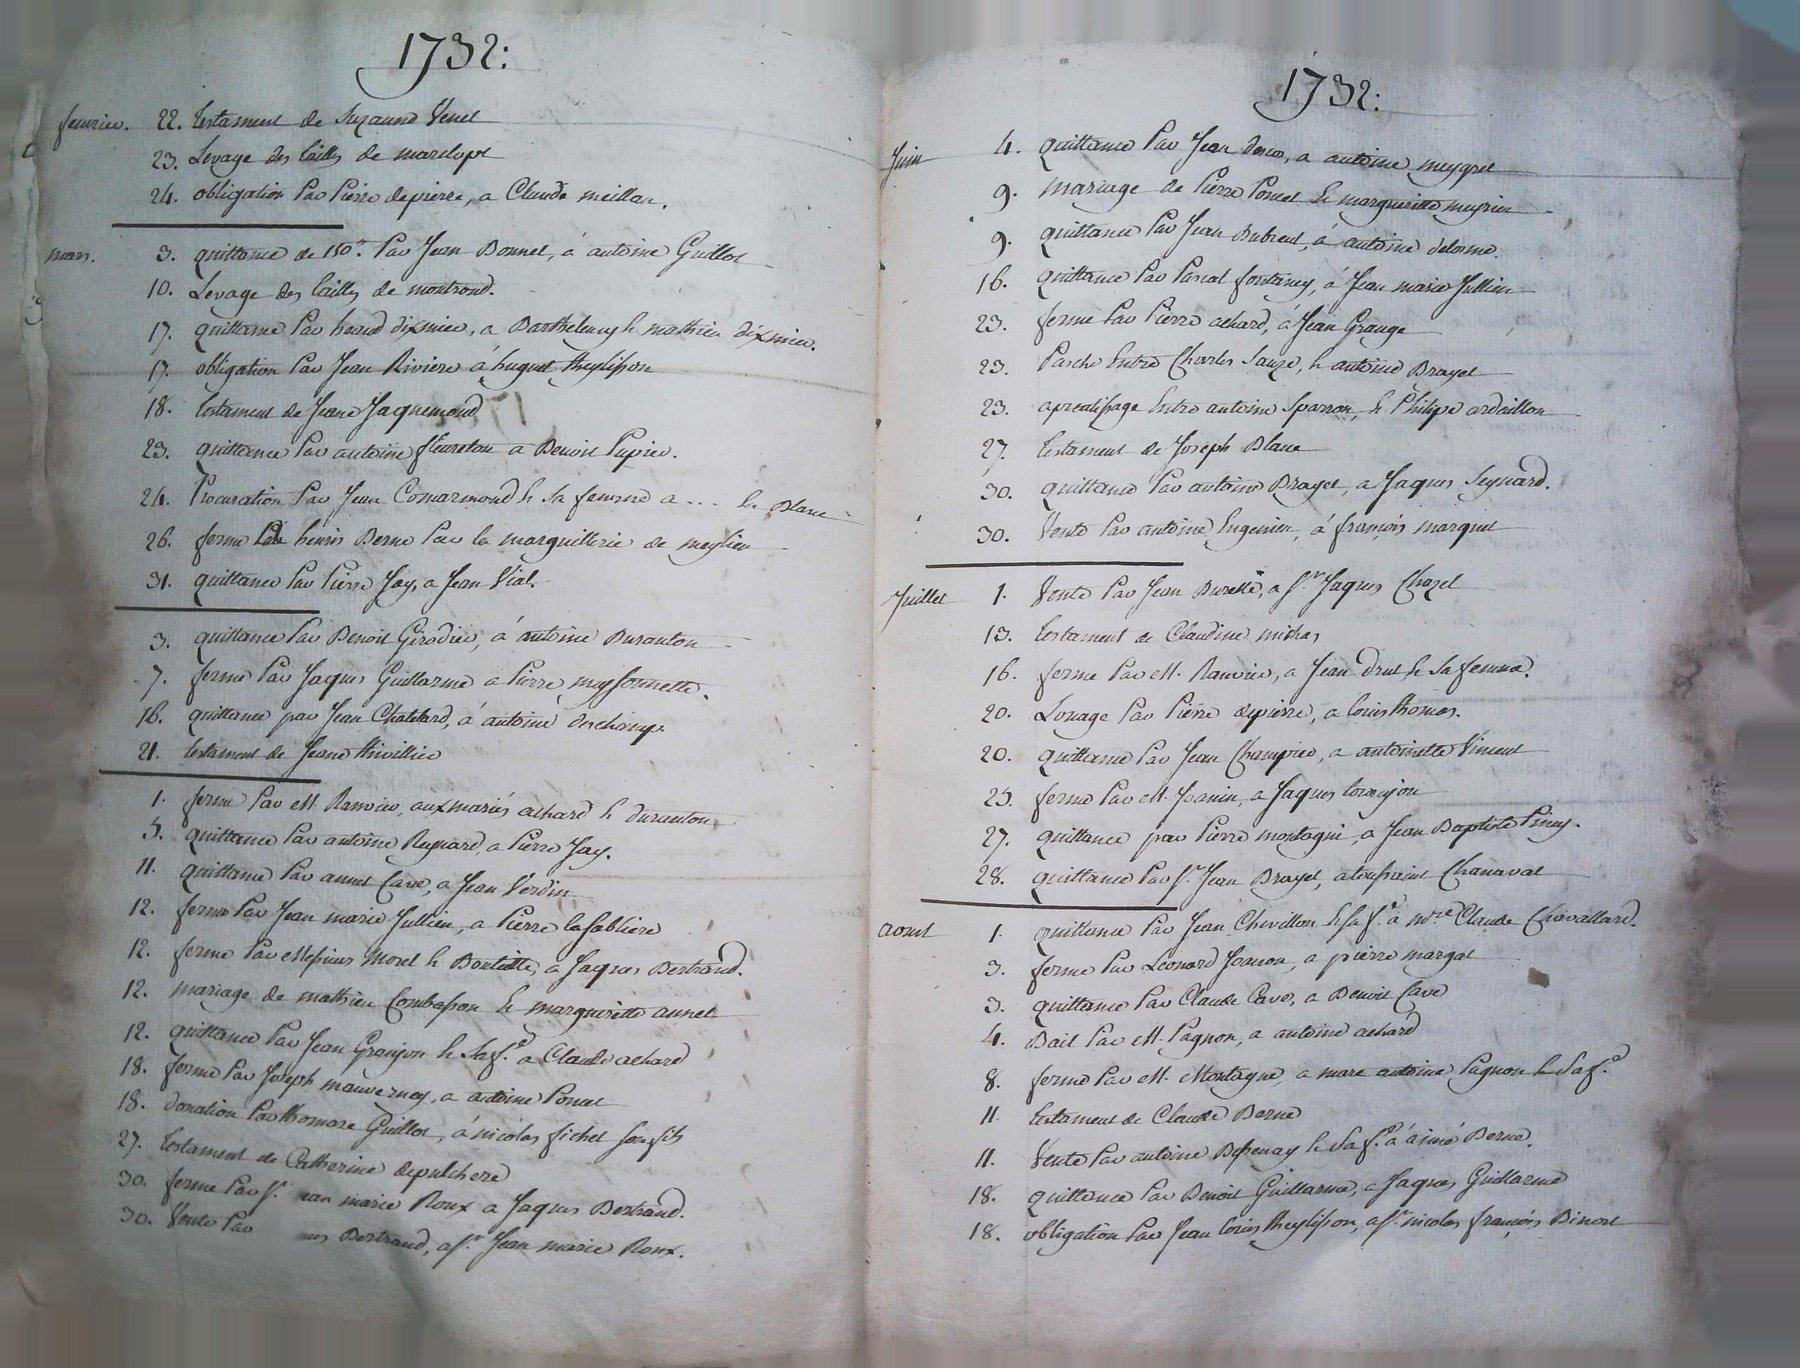 1732:
fevrier. 22. testament de Suzanne Venet
23. Levage des tailles de marclopt
24. obligation Par Pierre depierre, a Claude meillan.
mars. 3. quittance de 150.# Par Jean Bonnet, à antoine Guillot
10. Levage des tailles de montrond.
17. quittance Par benoid dixmier, a Barthelemy & mathieu dixmier.
17. obligation Par Jean Riviere à huguet theylisson
18. testament de Jeane Jaquemond
23. quittance Par antoine fleureton a Benoit Pupier.
24. Procuration Par Jean Comarmond & sa femme a ... le Blanc
26. ferme henris Berne Par la marguillerie de meylieu
31. quittance Par Pierre Jay, a Jean Vial.
3. quittance Par Benoit Girodier, à antoine Duranton
7. ferme Par Jaques Guillarme a Pierre meyssonnette.
16. quittance par Jean Chatelard, à antoine duchamp.
21. testament de Jeane thivillier
1. ferme Par M. Ranvier, aux mariés achard & duranton
5. quittance Par antoine Reynard, a Pierre Jay.
11. quittance Par annet Cave, a Jean Verdin
12. ferme Par Jean marie Jullien, a Pierre lasabliere
12. ferme Par Messieurs Morel & Bouteille, a Jaques Bertrand.
12. mariage de mathieu Combasson & marguerite annet
12. quittance Par Jean Granjon & sa f.e a Claude achard
18. ferme Par Joseph mauverney, a antoine Poncet
18. donation Par thomase Guillot, à nicolas fichet son fils
27. testament de Catherine depulchere
30. ferme Par s.r ean marie Roux a Jaques Bertrand.
30. Vente Par ues Bertrand, a s.r Jean marie Roux.
1732:
Juin 4. quittance Par Jean, a antoine meygret
9. mariage de Pierre Poncet & marguerite meyrieu
9. quittance Par Jean Dubreul, à antoine delorme.
16. quittance Par Pascal fontaney, à Jean marie Jullien
23. ferme Par Pierre achard, à Jean Grange
23. Pasche Entre Charles Sauze, & antoine Brayet
23. aprentissage Entre antoine Sparron, & Philipe ardaillon
27. testament de Joseph Blanc
30. quittance Par antoine Brayet, a Jaques Seynard.
30. Vente Par antoine Engenieu, à françois marquet
Juillet 1. Vente Par Jean Burelle, a s.r Jaques Chazel
13. testament de Claudine michas
16. ferme Par M. Ranvier, a Jean drut & sa femme.
20. Louage Par Pierre depierre, a louis thomas.
20. quittance Par Jean Champier, a antoinette Vincent
25. ferme Par M. Joanin, a Jaques
27. quittance par Pierre montagni, a Jean Baptiste Piney.
28. quittance Par s.r Jean Brayet, a toussaint Chanavat
aoust 1. quittance Par Jean Chevillon & sa f.e a m.re Claude Chavallard.
3. ferme Par Leonard Joanon, a pierre margat
3. quittance Par Claude Cave, a Benoit Cave
4. Bail Par M. Pagnon, a antoine achard
8. ferme Par M. Montagne, a marc antoine Pagnon & sa f.e
11. testament de Claude Berne
11. Vente Par antoine Bessenay & sa f.e à aimé Berne.
18. quittance Par Benoit Guillarme, a Jaques Guillarme
18. obligation Par Jean louis theylisson, a s.r nicolas françois Binost